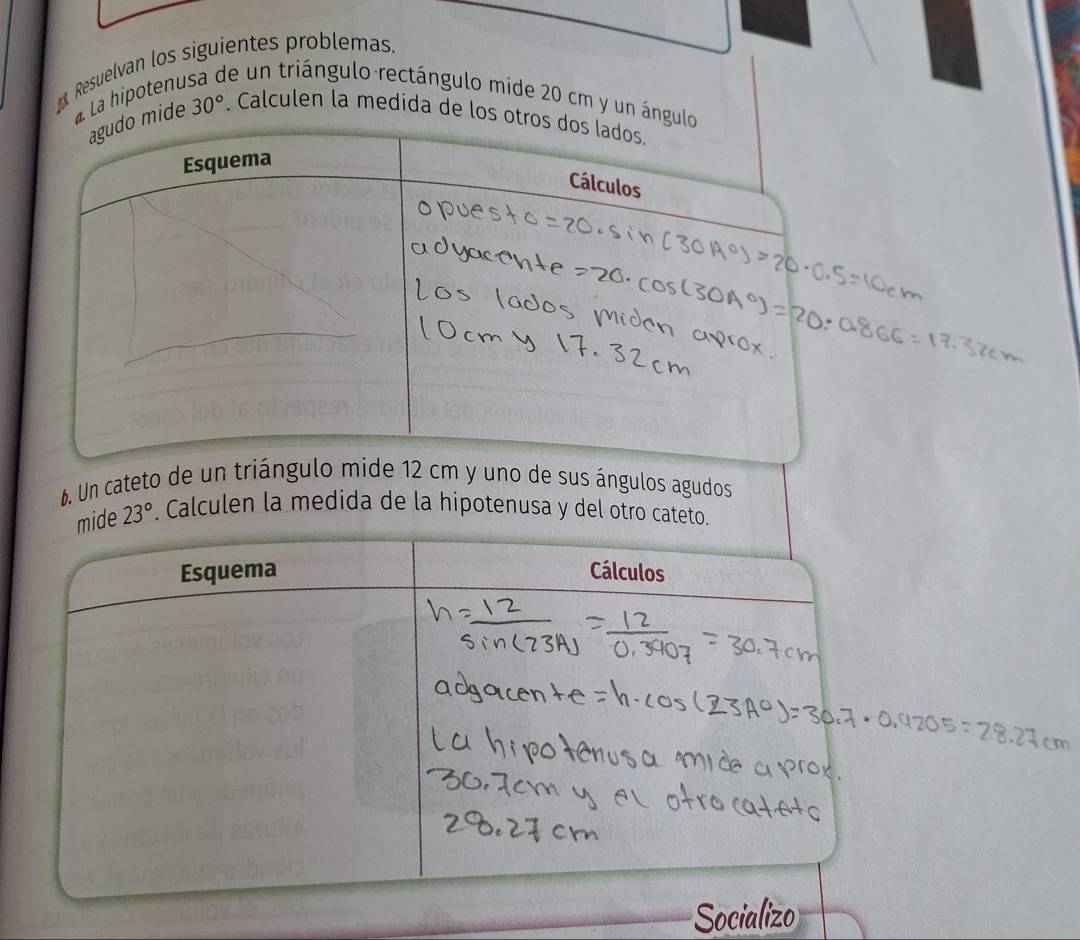 23. Resuelvan los siguientes problemas.
a. La hipotenusa de un triángulo rectángulo mide 20 cm y un ángulo
agudo mide 30°. Calculen la medida de los otros dos lados.
Esquema
Cálculos
opuesto = 20 . sin (30A°) = 20 . 0.5 = 10cm
adyacente = 20 . cos (30A°) = 20 . 0.866 = 17.32cm
Los lados miden aprox.
10cm y 17.32 cm
b. Un cateto de un triángulo mide 12 cm y uno de sus ángulos agudos
mide 23°. Calculen la medida de la hipotenusa y del otro cateto.
Esquema
Cálculos
h = 12 / sin (23A) = 12 / 0,3907 = 30.7cm
adgacente = h . cos (23A°) = 30.7 . 0.9205 = 28.27 cm
La hipotenusa mide aprox.
30.7cm y el otro cateto
28.27 cm
Socializo